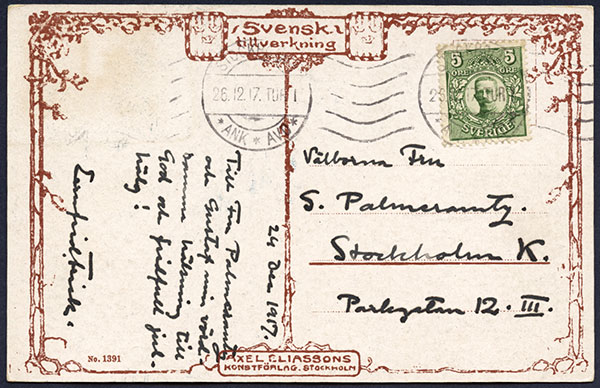 Svensk
tillverkning
26.12.17. TUR 1
* ANK * AVG *
5 5
ÖRE ÖRE
SVERIGE
24 Dec 1917.
Till Fru Palmcrantz
och Gustaf min vörd-
samma hälsning till
God och fridfull jul-
helg!
Välborna Fru
S. Palmcrantz.
Stockholm K.
Parkgatan 12. III.
No. 1391
AXEL ELIASSONS
KONSTFÖRLAG. STOCKHOLM